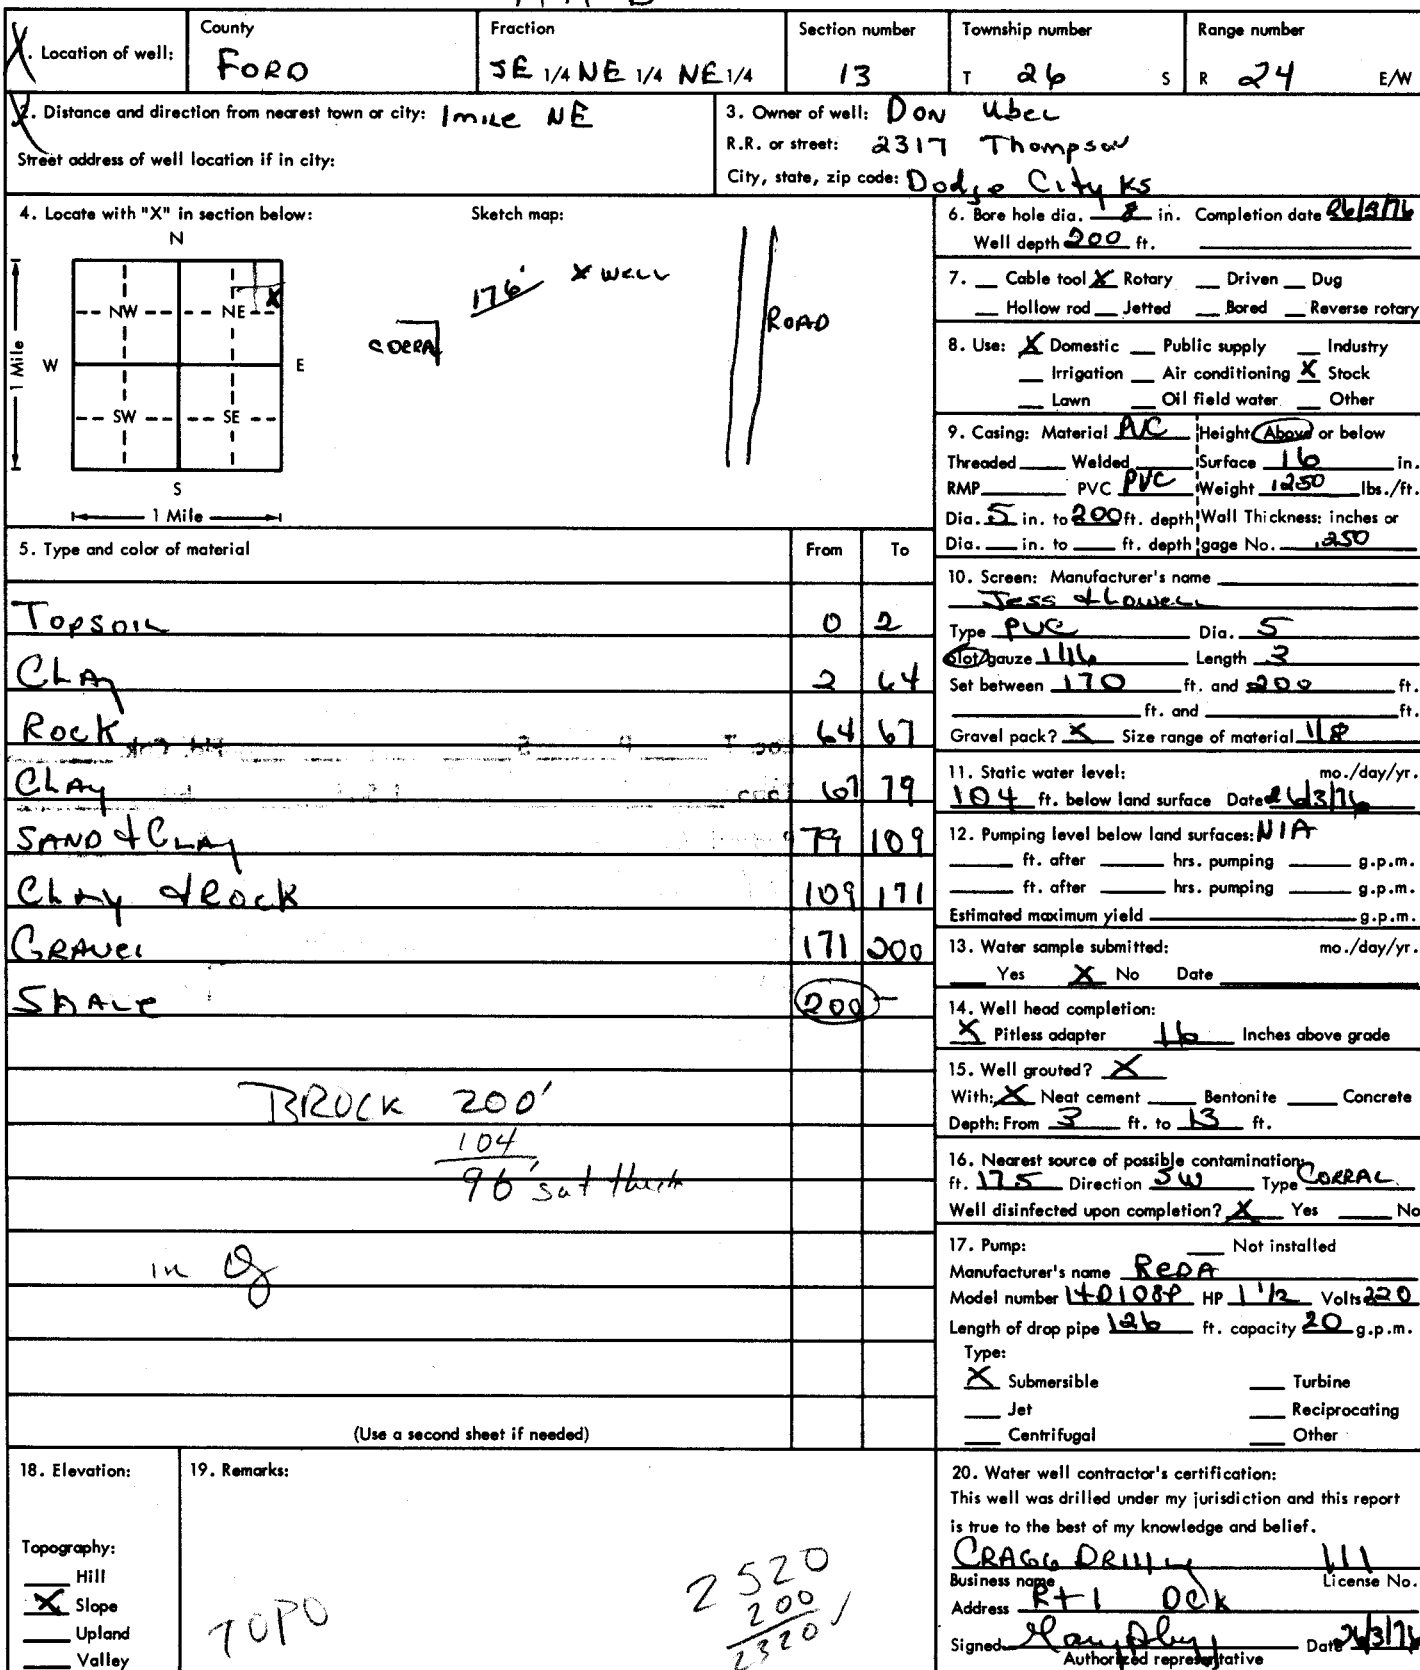 1. Location of well: County Ford Fraction SE 1/4 NE 1/4 NE 1/4 Section number 13 Township number T 26 S Range number R 24 E/W
2. Distance and direction from nearest town or city: 1 mile NE
Street address of well location if in city:
3. Owner of well: Don Ubel
R.R. or street: 2317 Thompson
City, state, zip code: Dodge City KS
4. Locate with "X" in section below: Sketch map:
N
NW NE X
W E
1 Mile
SW SE
S
1 Mile
176' X WELL
CORRAL
ROAD
5. Type and color of material From To
Topsoil 0 2
Clay 2 64
Rock 64 67
Clay 67 79
Sand & Clay 79 109
Clay & Rock 109 171
Gravel 171 200
Shale 200 -
BROCK 200'
104
96' sat thick
in
(Use a second sheet if needed)
6. Bore hole dia. 8 in. Completion date 26/3/76
Well depth 200 ft.
7. Cable tool X Rotary Driven Dug
Hollow rod Jetted Bored Reverse rotary
8. Use: X Domestic Public supply Industry
Irrigation Air conditioning X Stock
Lawn Oil field water Other
9. Casing: Material PVC Height Above or below
Threaded Welded Surface 16 in.
RMP PVC PVC Weight 1250 lbs./ft.
Dia. 5 in. to 200 ft. depth Wall Thickness: inches or
Dia. in. to ft. depth gage No. .250
10. Screen: Manufacturer's name
Jess & Lowell
Type PVC Dia. 5
Slot/gauze 1/16 Length 3
Set between 170 ft. and 200 ft.
ft. and ft.
Gravel pack? X Size range of material 1/8
11. Static water level: mo./day/yr.
104 ft. below land surface Date 26/3/76
12. Pumping level below land surfaces: N/A
ft. after hrs. pumping g.p.m.
ft. after hrs. pumping g.p.m.
Estimated maximum yield g.p.m.
13. Water sample submitted: mo./day/yr.
Yes X No Date
14. Well head completion:
X Pitless adapter 16 Inches above grade
15. Well grouted? X
With: X Neat cement Bentonite Concrete
Depth: From 3 ft. to 13 ft.
16. Nearest source of possible contamination:
ft. 175 Direction SW Type CORRAL
Well disinfected upon completion? X Yes No
17. Pump: Not installed
Manufacturer's name REDA
Model number 14D108P HP 1 1/2 Volts 220
Length of drop pipe 126 ft. capacity 20 g.p.m.
Type:
X Submersible Turbine
Jet Reciprocating
Centrifugal Other
18. Elevation:
Topography:
Hill
X Slope
Upland
Valley
19. Remarks:
TOPO
2520
200
2320
20. Water well contractor's certification:
This well was drilled under my jurisdiction and this report
is true to the best of my knowledge and belief.
CRAGG Drilling 111
Business name License No.
Address Rt 1 DCK
Signed Date 26/3/76
Authorized representative